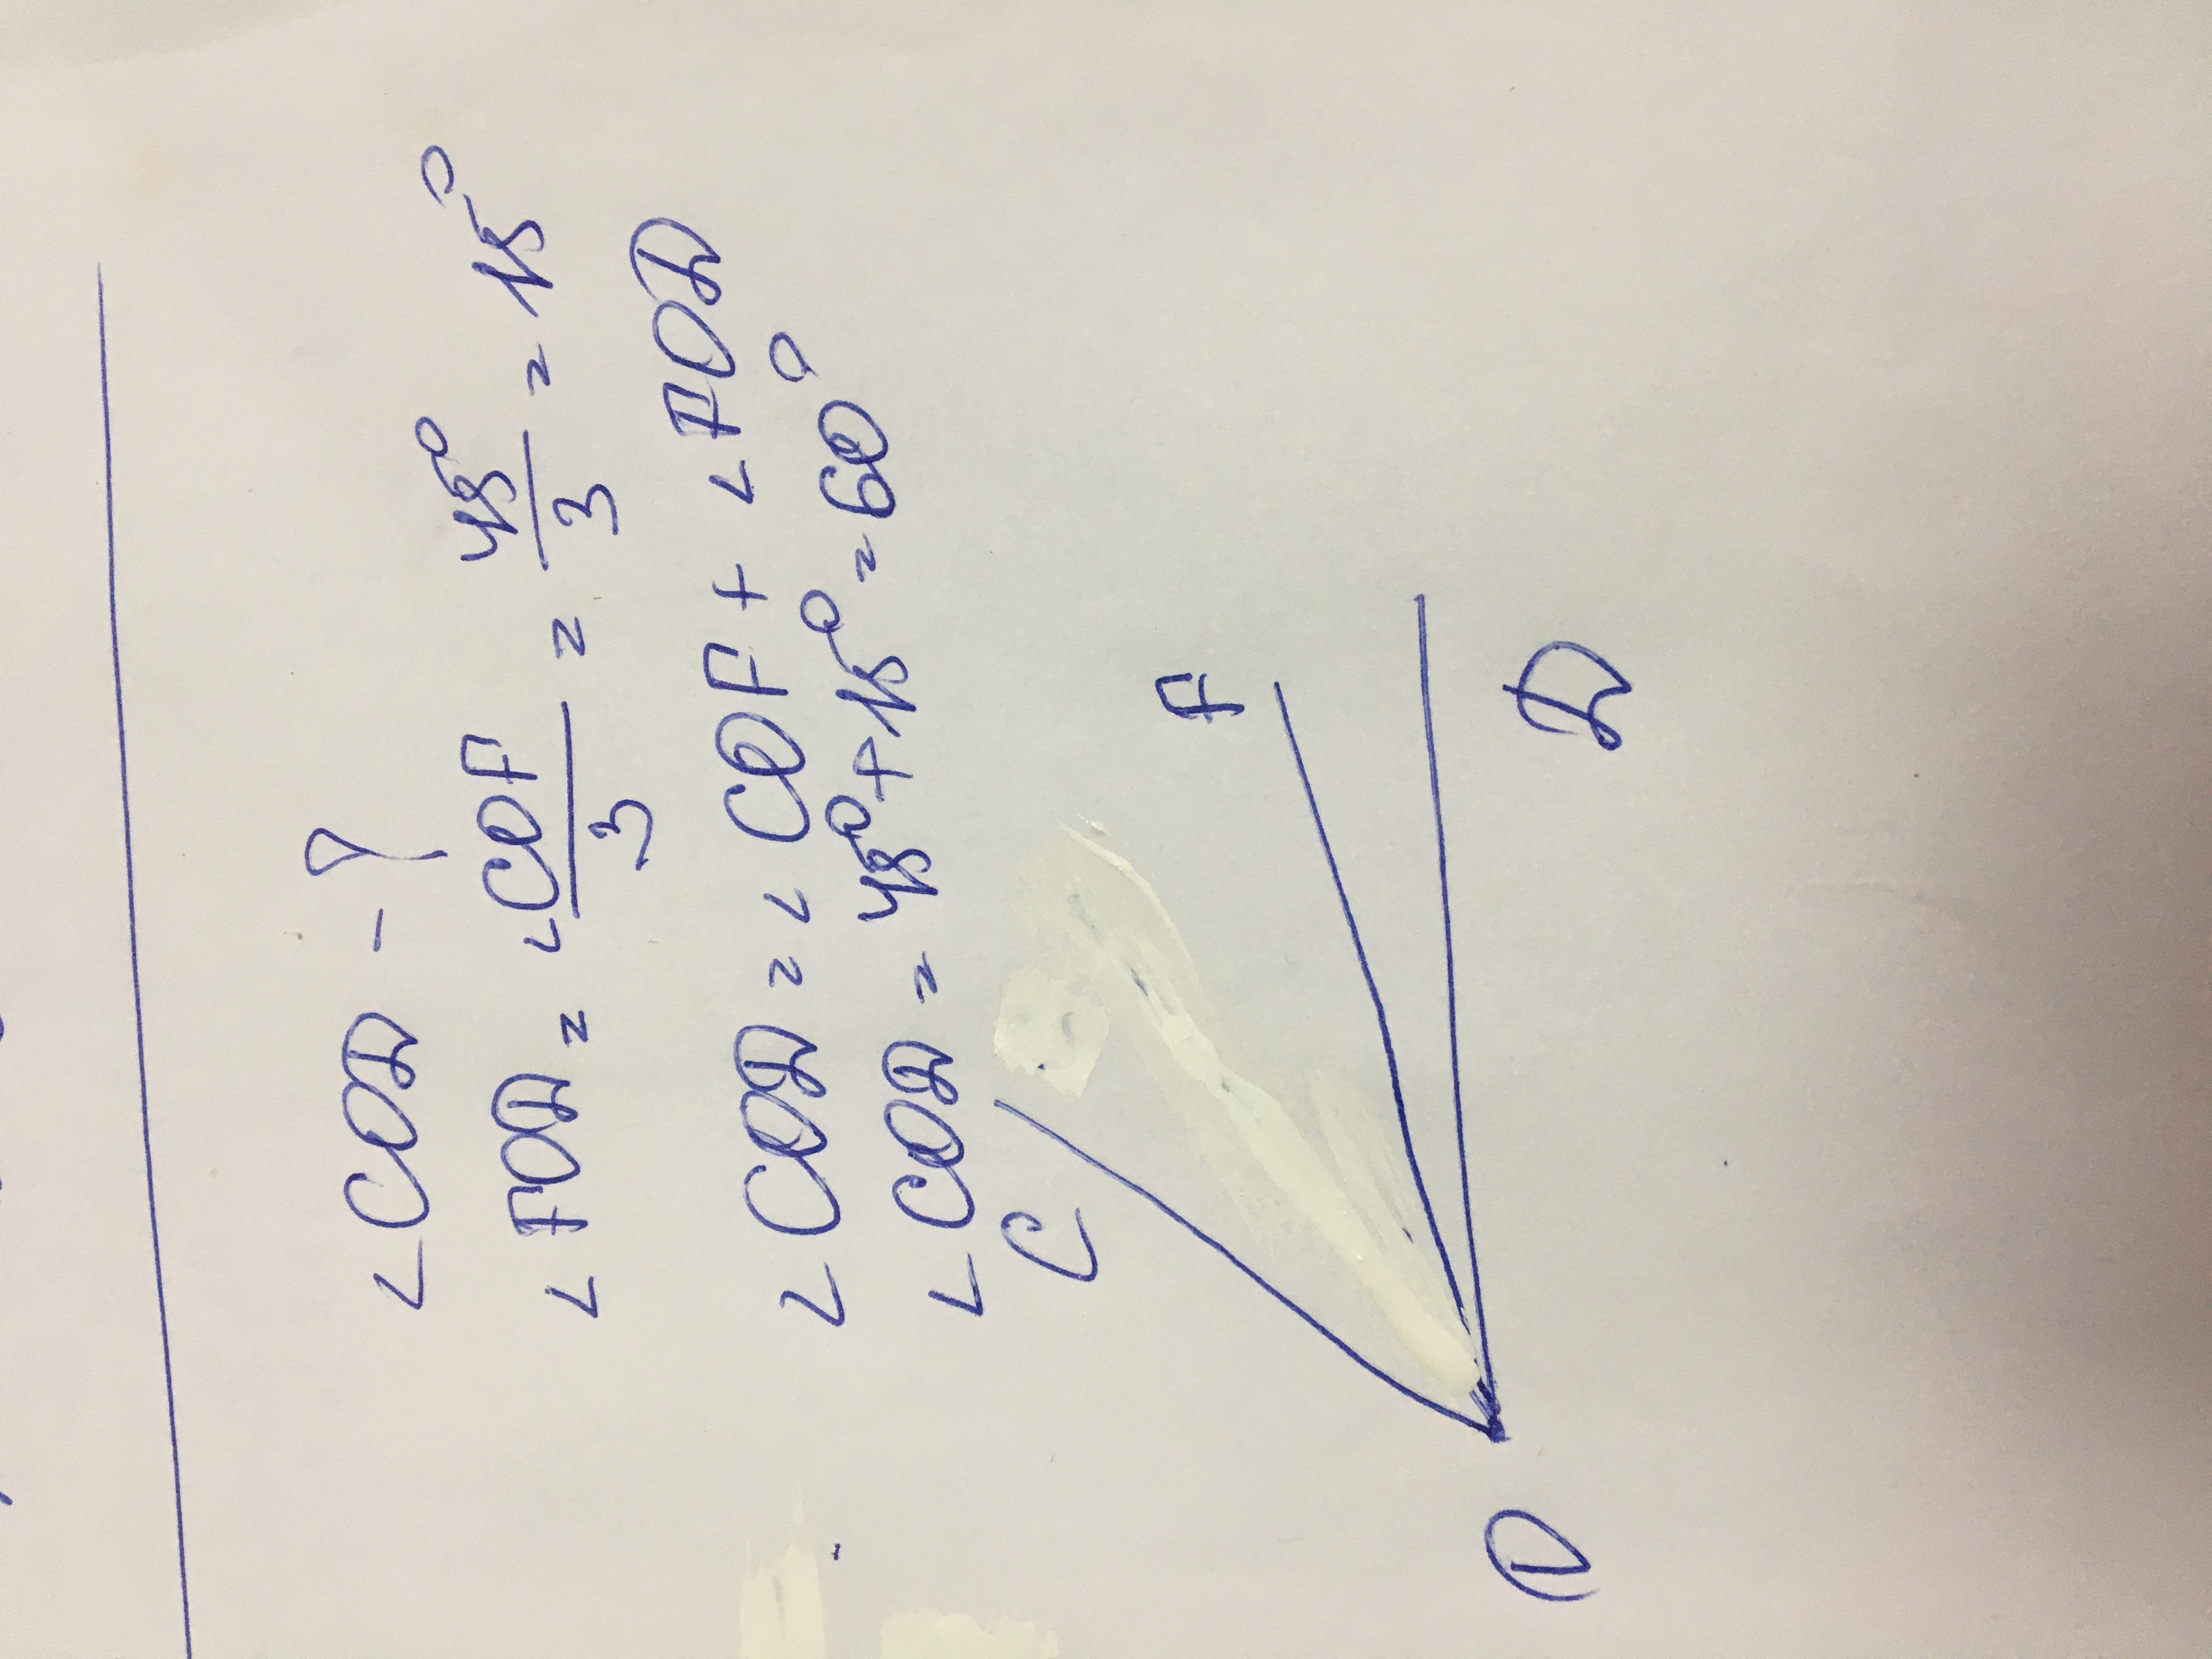 ∠COD - ?
∠FOD = ∠COF/3 = 45°/3 = 15°
∠COD = ∠COF + ∠FOD
∠COD = 45° + 15° = 60°
C
F
O
D